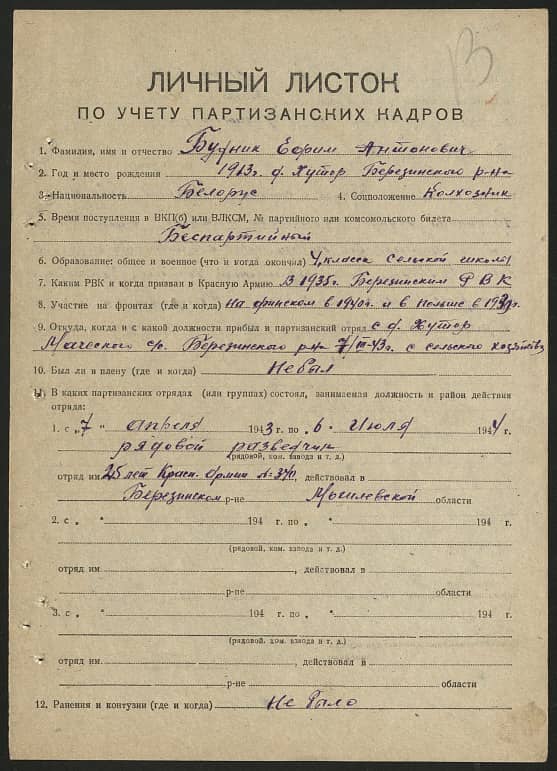 В
ЛИЧНЫЙ ЛИСТОК
ПО УЧЕТУ ПАРТИЗАНСКИХ КАДРОВ
1. Фамилия, имя и отчество Будник Ефим Антонович
2. Год и место рождения 1913г. д. Хутор Березинского р-на
3. Национальность Белорус 4. Соцположение Колхозник
5. Время поступления в ВКП(б) или ВЛКСМ, № партийного или комсомольского билета
Беспартийный
6. Образование: общее и военное (что и когда окончил) 4 класса сельской школы
7. Каким РВК и когда призван в Красную Армию В 1935г. Березинским РВК
8. Участие на фронтах (где и когда) На финском в 1940г. и в Польше в 1939г.
9. Откуда, когда и с какой должности прибыл в партизанский отряд с д. Хутор
с/с. Березинского р-на 7/ -43г. с сельского хозяйства
10. Был ли в плену (где и когда) Не был
11. В каких партизанских отрядах (или группах) состоял, занимаемая должность и район действия
отряда:
1. с „7 " апреля 1943 г. по „6. Июля 1944 г.
рядовой разведчик
(рядовой, ком. взвода и т. д.)
отряд им. 25 лет Красн. Армии , действовал в
Березинском р-не Могилевской области
2. с „ " 194 г. по „ " 194 г.
(рядовой, ком. взвода и т. д.)
отряд им. , действовал в
р-не области
3. с „ " 194 г. по „ " 194 г.
(рядовой, ком. взвода и т. д.)
отряд им. , действовал в
р-не области
12. Ранения и контузии (где и когда) Не было